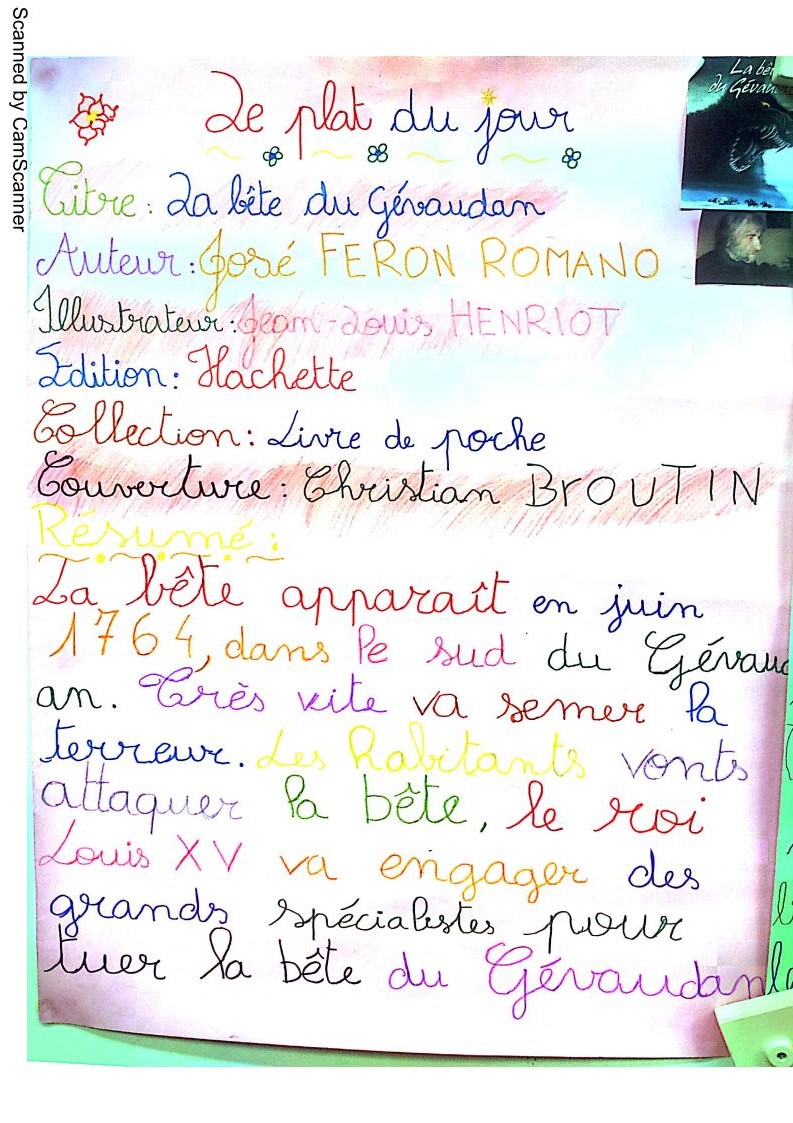 Scanned by CamScanner
Le plat du jour
La bê
du Gévau
Titre : La bête du Gévaudan
Auteur : José FERON ROMANO
Illustrateur : Jean-Louis HENRIOT
Édition : Hachette
Collection : Livre de poche
Couverture : Christian BrOUTIN
Résumé :
La bête apparaît en juin
1764, dans le sud du Gévaud
an. Très vite va semer la
terreur. Les habitants vonts
attaquer la bête, le roi
Louis XV va engager des
grands spécialistes pour
tuer la bête du Gévaudan